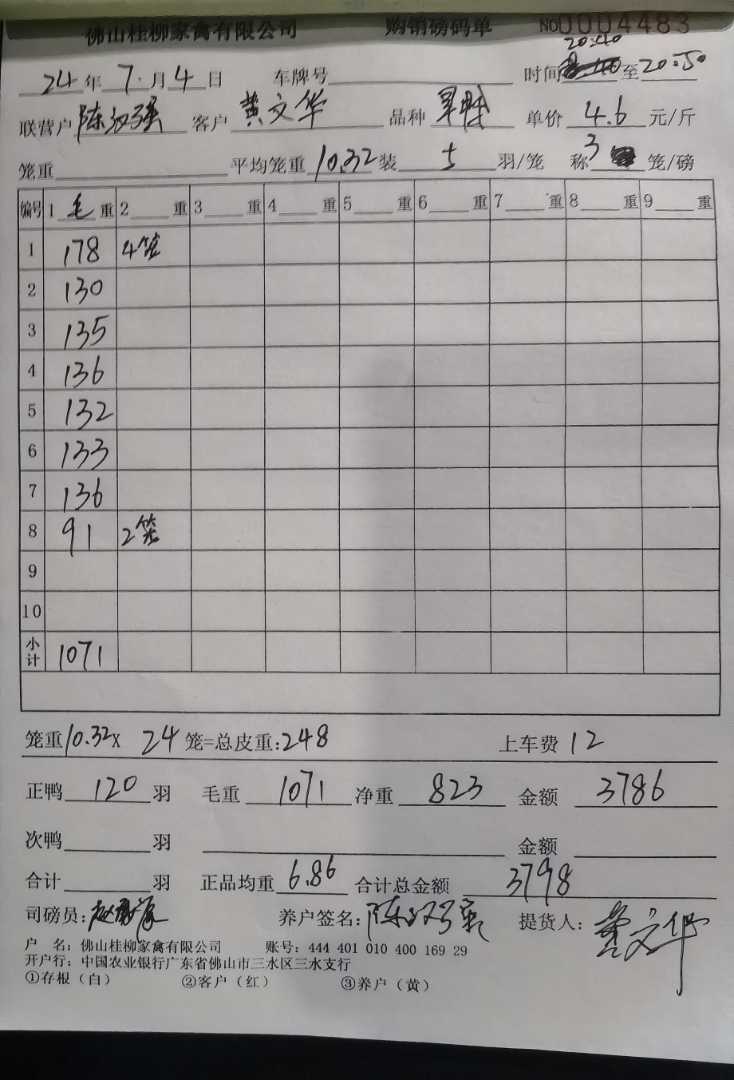 佛山桂柳家禽有限公司 购销磅码单 NO0004483
20:40
24年7月4日 车牌号 时间 至20:50
联营户陈汉强 客户黄文华 品种 单价4.6元/斤
笼重 平均笼重10.32装5羽/笼 称3笼/磅
编号 1毛重 2重 3重 4重 5重 6重 7重 8重 9重
1 178 4笼
2 130
3 135
4 136
5 132
6 133
7 136
8 91 2笼
9
10
小计 1071
笼重10.32x 24笼=总皮重:248 上车费12
正鸭120羽 毛重1071净重823 金额3786
次鸭羽 金额
合计羽 正品均重6.86 合计总金额3798
司磅员: 养户签名:陈汉强 提货人:黄文华
户 名:佛山桂柳家禽有限公司 账号:444 401 010 400 169 29
开户行:中国农业银行广东省佛山市三水区三水支行
①存根(白) ②客户(红) ③养户(黄)